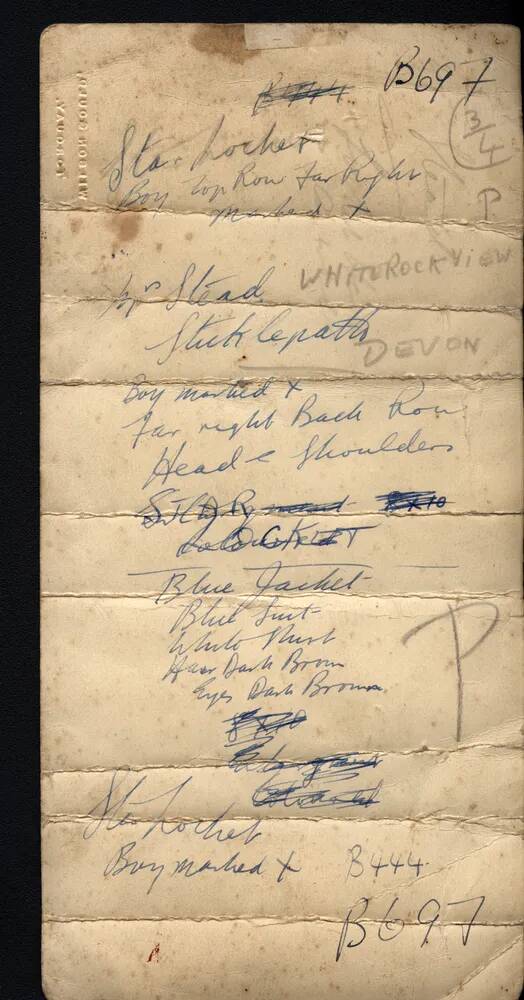 B697
3/4
Star Locket
Boy Top Row Far Right
marked X
P
WHITEROCK VIEW
Mrs Stead
Sticklepath
DEVON
Boy marked X
Far right Back Row
Head & Shoulders
STAR
LOCKET
Blue Jacket
Blue Suit
White Shirt
Hair Dark Brown
Eyes Dark Brown
P
Star Locket
Boy marked X B444
B697